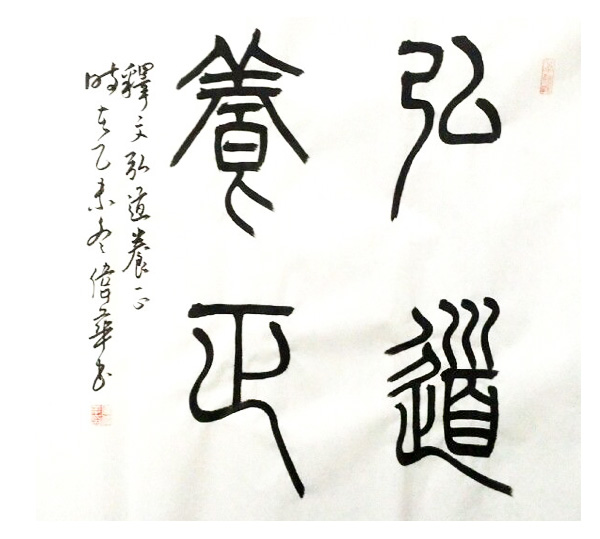 弘道
養正
釋文弘道養正
時在乙未冬偉華書